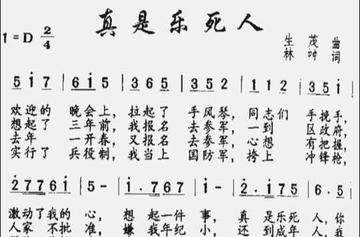 真是乐死人
1=D 2/4
生茂 曲
林 词
5 1 7 | 6 1 5 | 3 6 5 3 5 2 | 1 1 2 3 5
欢迎的 晚会上, 拉起了 手风琴, 同志们 手挽手,
想起了 三年前, 我报名 去参军, 一到 区政府,
去年 一开春, 又报名 去参军, 心想
实行了 兵役制, 我当上 国防军, 挎上 冲锋枪,
2 7 7 6 1 | 5 - | 1 . 7 6 7 | 1 - | 2 . 1 7 5 | 1 -
激动了我的 心, 想起一件 事, 真是乐死 人, 你
人家 不批 准, 嫌我年纪 小, 还到成年 人,